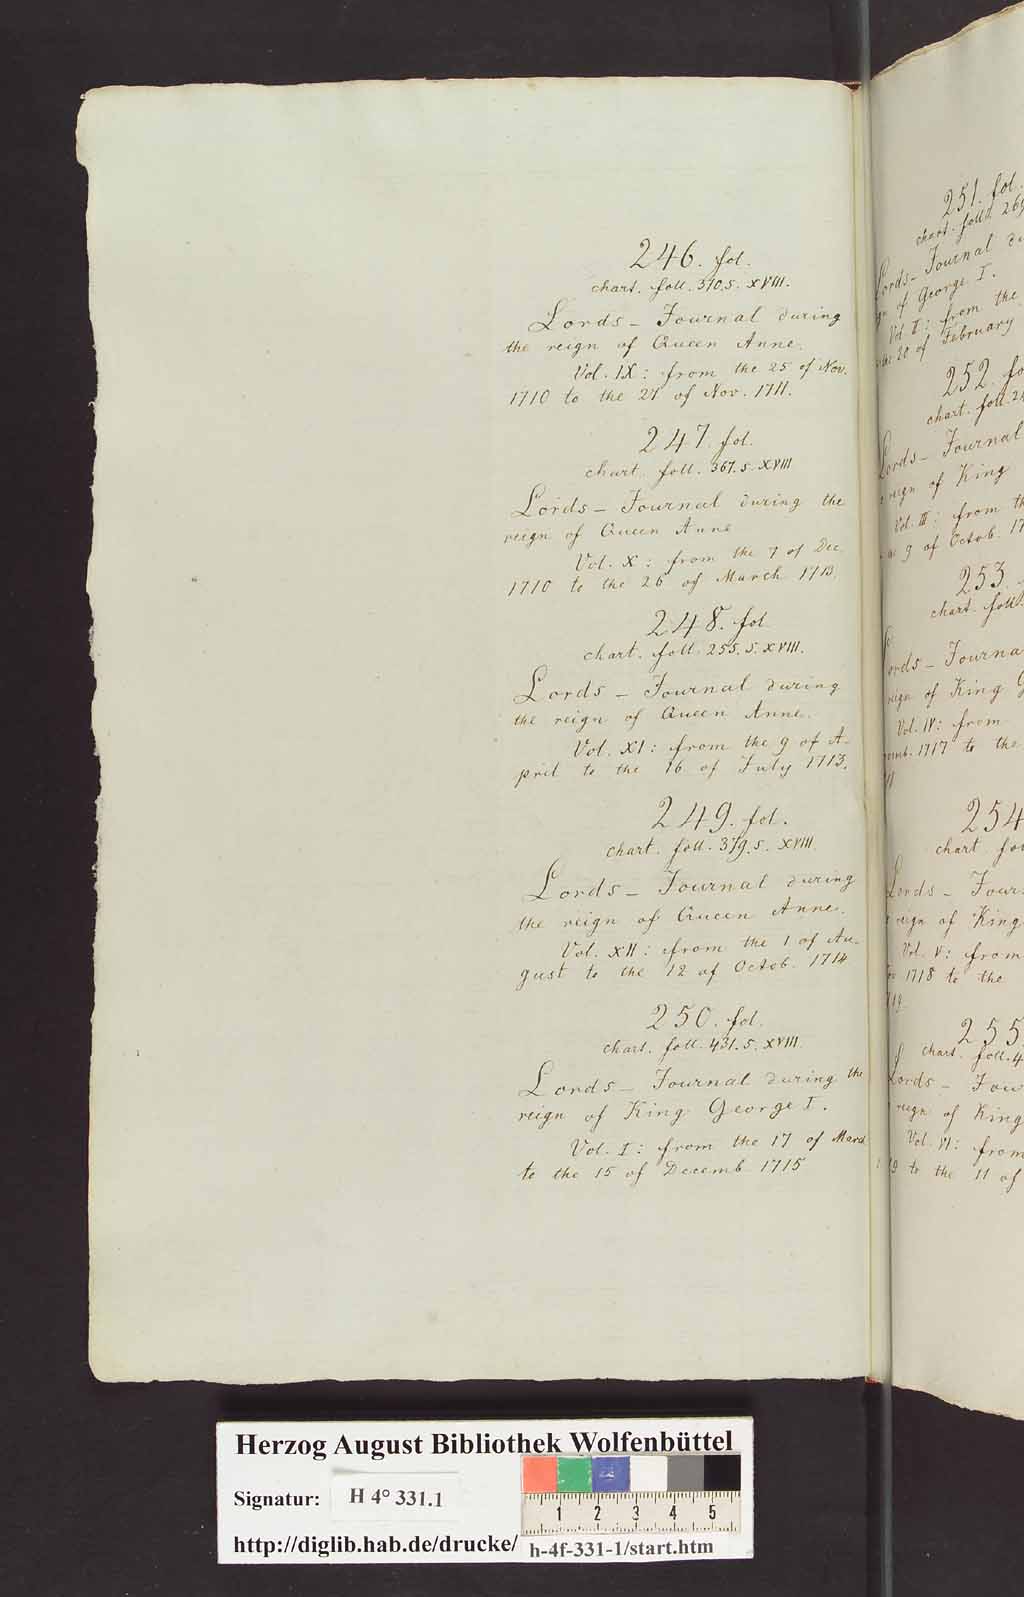 246. fol.
chart. foll. 310. s. XVIII.
Lords - Journal during
the reign of Queen Anne.
Vol. IX: from the 25 of Nov.
1710 to the 27 of Nov. 1711.
247. fol.
chart. foll. 367. s. XVIII
Lords - Journal during the
reign of Queen Anne
Vol. X: from the 7 of Dec.
1710 to the 26 of March 1713.
248. fol.
chart. foll. 255. s. XVIII.
Lords - Journal during
the reign of Queen Anne.
Vol. XI: from the 9 of A-
pril to the 16 of July 1713.
249. fol.
chart. foll. 379. s. XVIII.
Lords - Journal during
the reign of Queen Anne.
Vol. XII: from the 1 of Au-
gust to the 12 of Octob. 1714
250. fol.
chart. foll. 431. s. XVIII.
Lords - Journal during the
reign of King George I.
Vol. I: from the 17 of March
to the 15 of Decemb. 1715
251. fol.
chart. foll.
Lords - Journal
of George I.
Vol. I: from the
20 of February
252.
chart. foll.
Lords - Journal
reign of King
Vol. III: from
9 of Octob.
253.
chart. foll.
Journal
reign of King
Vol. IV: from
1717 to the
254
chart
Lords -
reign of King
Vol. V: from
1718 to the
255
chart. foll.
Lords -
reign of King
Vol. VI: from
to the 11 of
Herzog August Bibliothek Wolfenbüttel
Signatur: H 4° 331.1
1 2 3 4 5
http://diglib.hab.de/drucke/ h-4f-331-1/start.htm